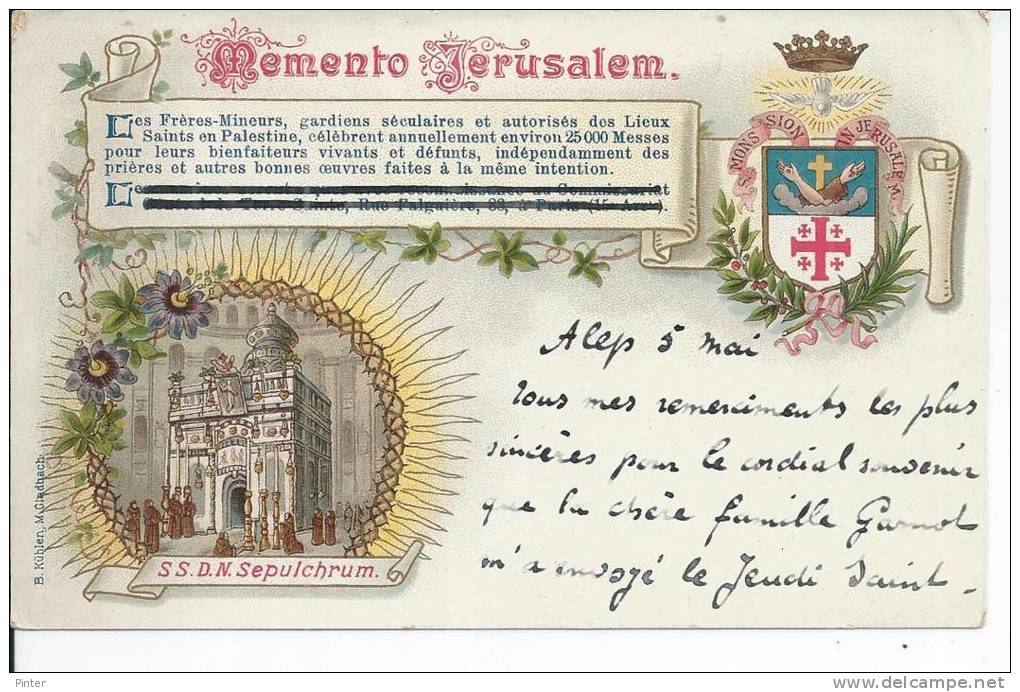 Memento Jerusalem.
Les Frères-Mineurs, gardiens séculaires et autorisés des Lieux
Saints en Palestine, célèbrent annuellement environ 25 000 Messes
pour leurs bienfaiteurs vivants et défunts, indépendamment des
prières et autres bonnes œuvres faites à la même intention.
Les au Commissariat
de Terre Sainte, Rue Falguière, 83, à Paris (15e Arrt).
S. MONS SION IN JERUSALEM.
Alep 5 mai
Tous mes remerciments les plus
sincères pour le cordial souvenir
que la chère famille Garnot
m'a envoyé le Jeudi Saint.
SS.D.N. Sepulchrum.
B. Kühlen, M.Gladbach.
Pinter
www.delcampe.net